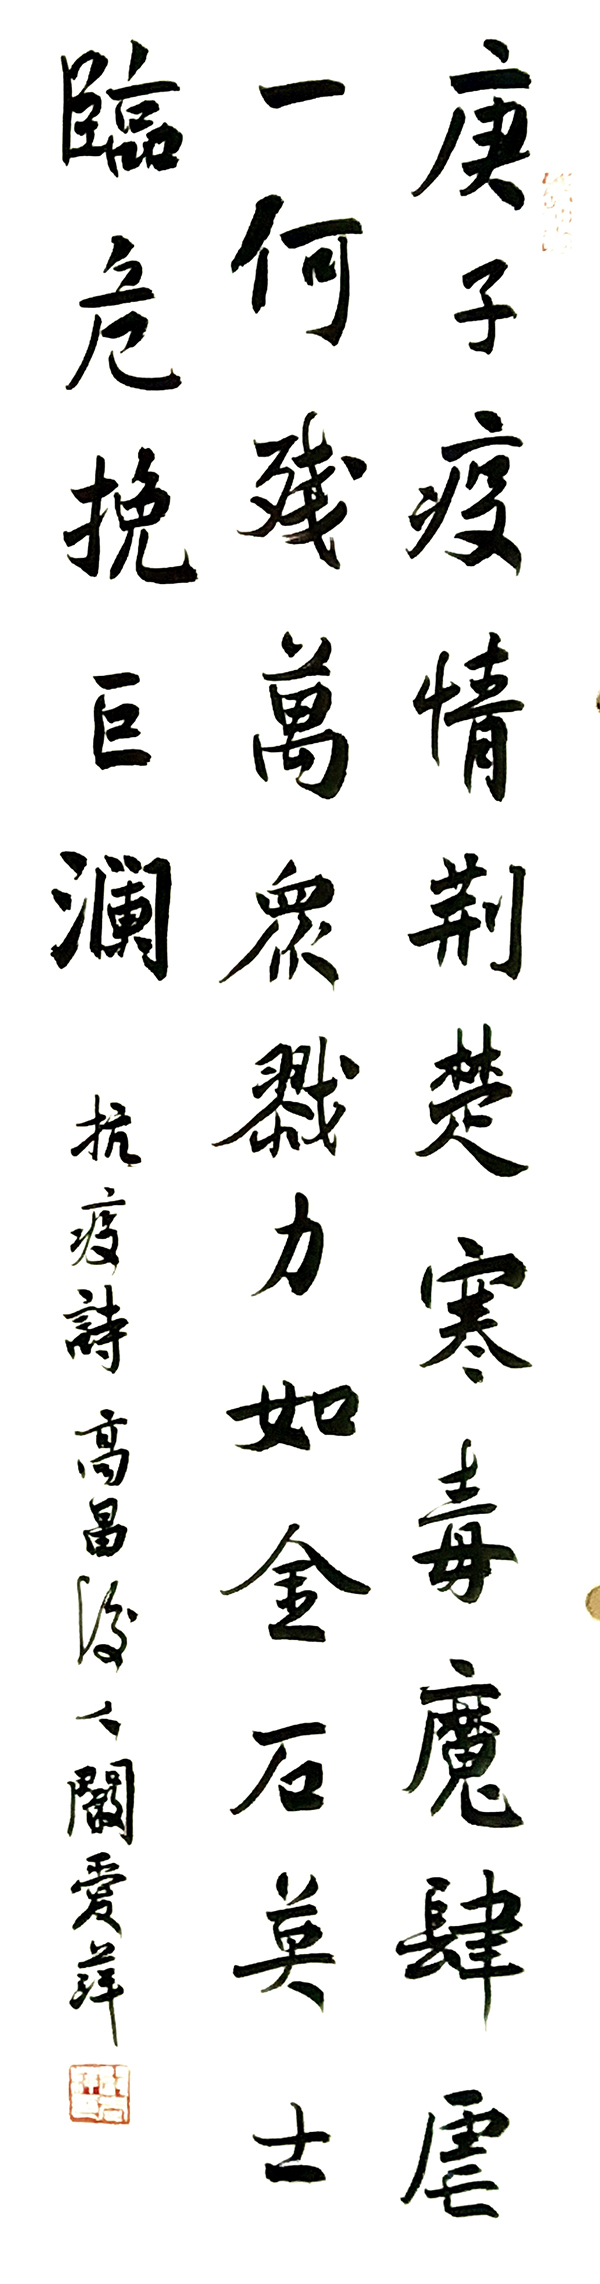 庚子疫情荆楚寒毒魔肆虐
一何残萬眾戮力如金石莫士
臨危挽巨澜
抗疫詩高昌後人闞愛萍